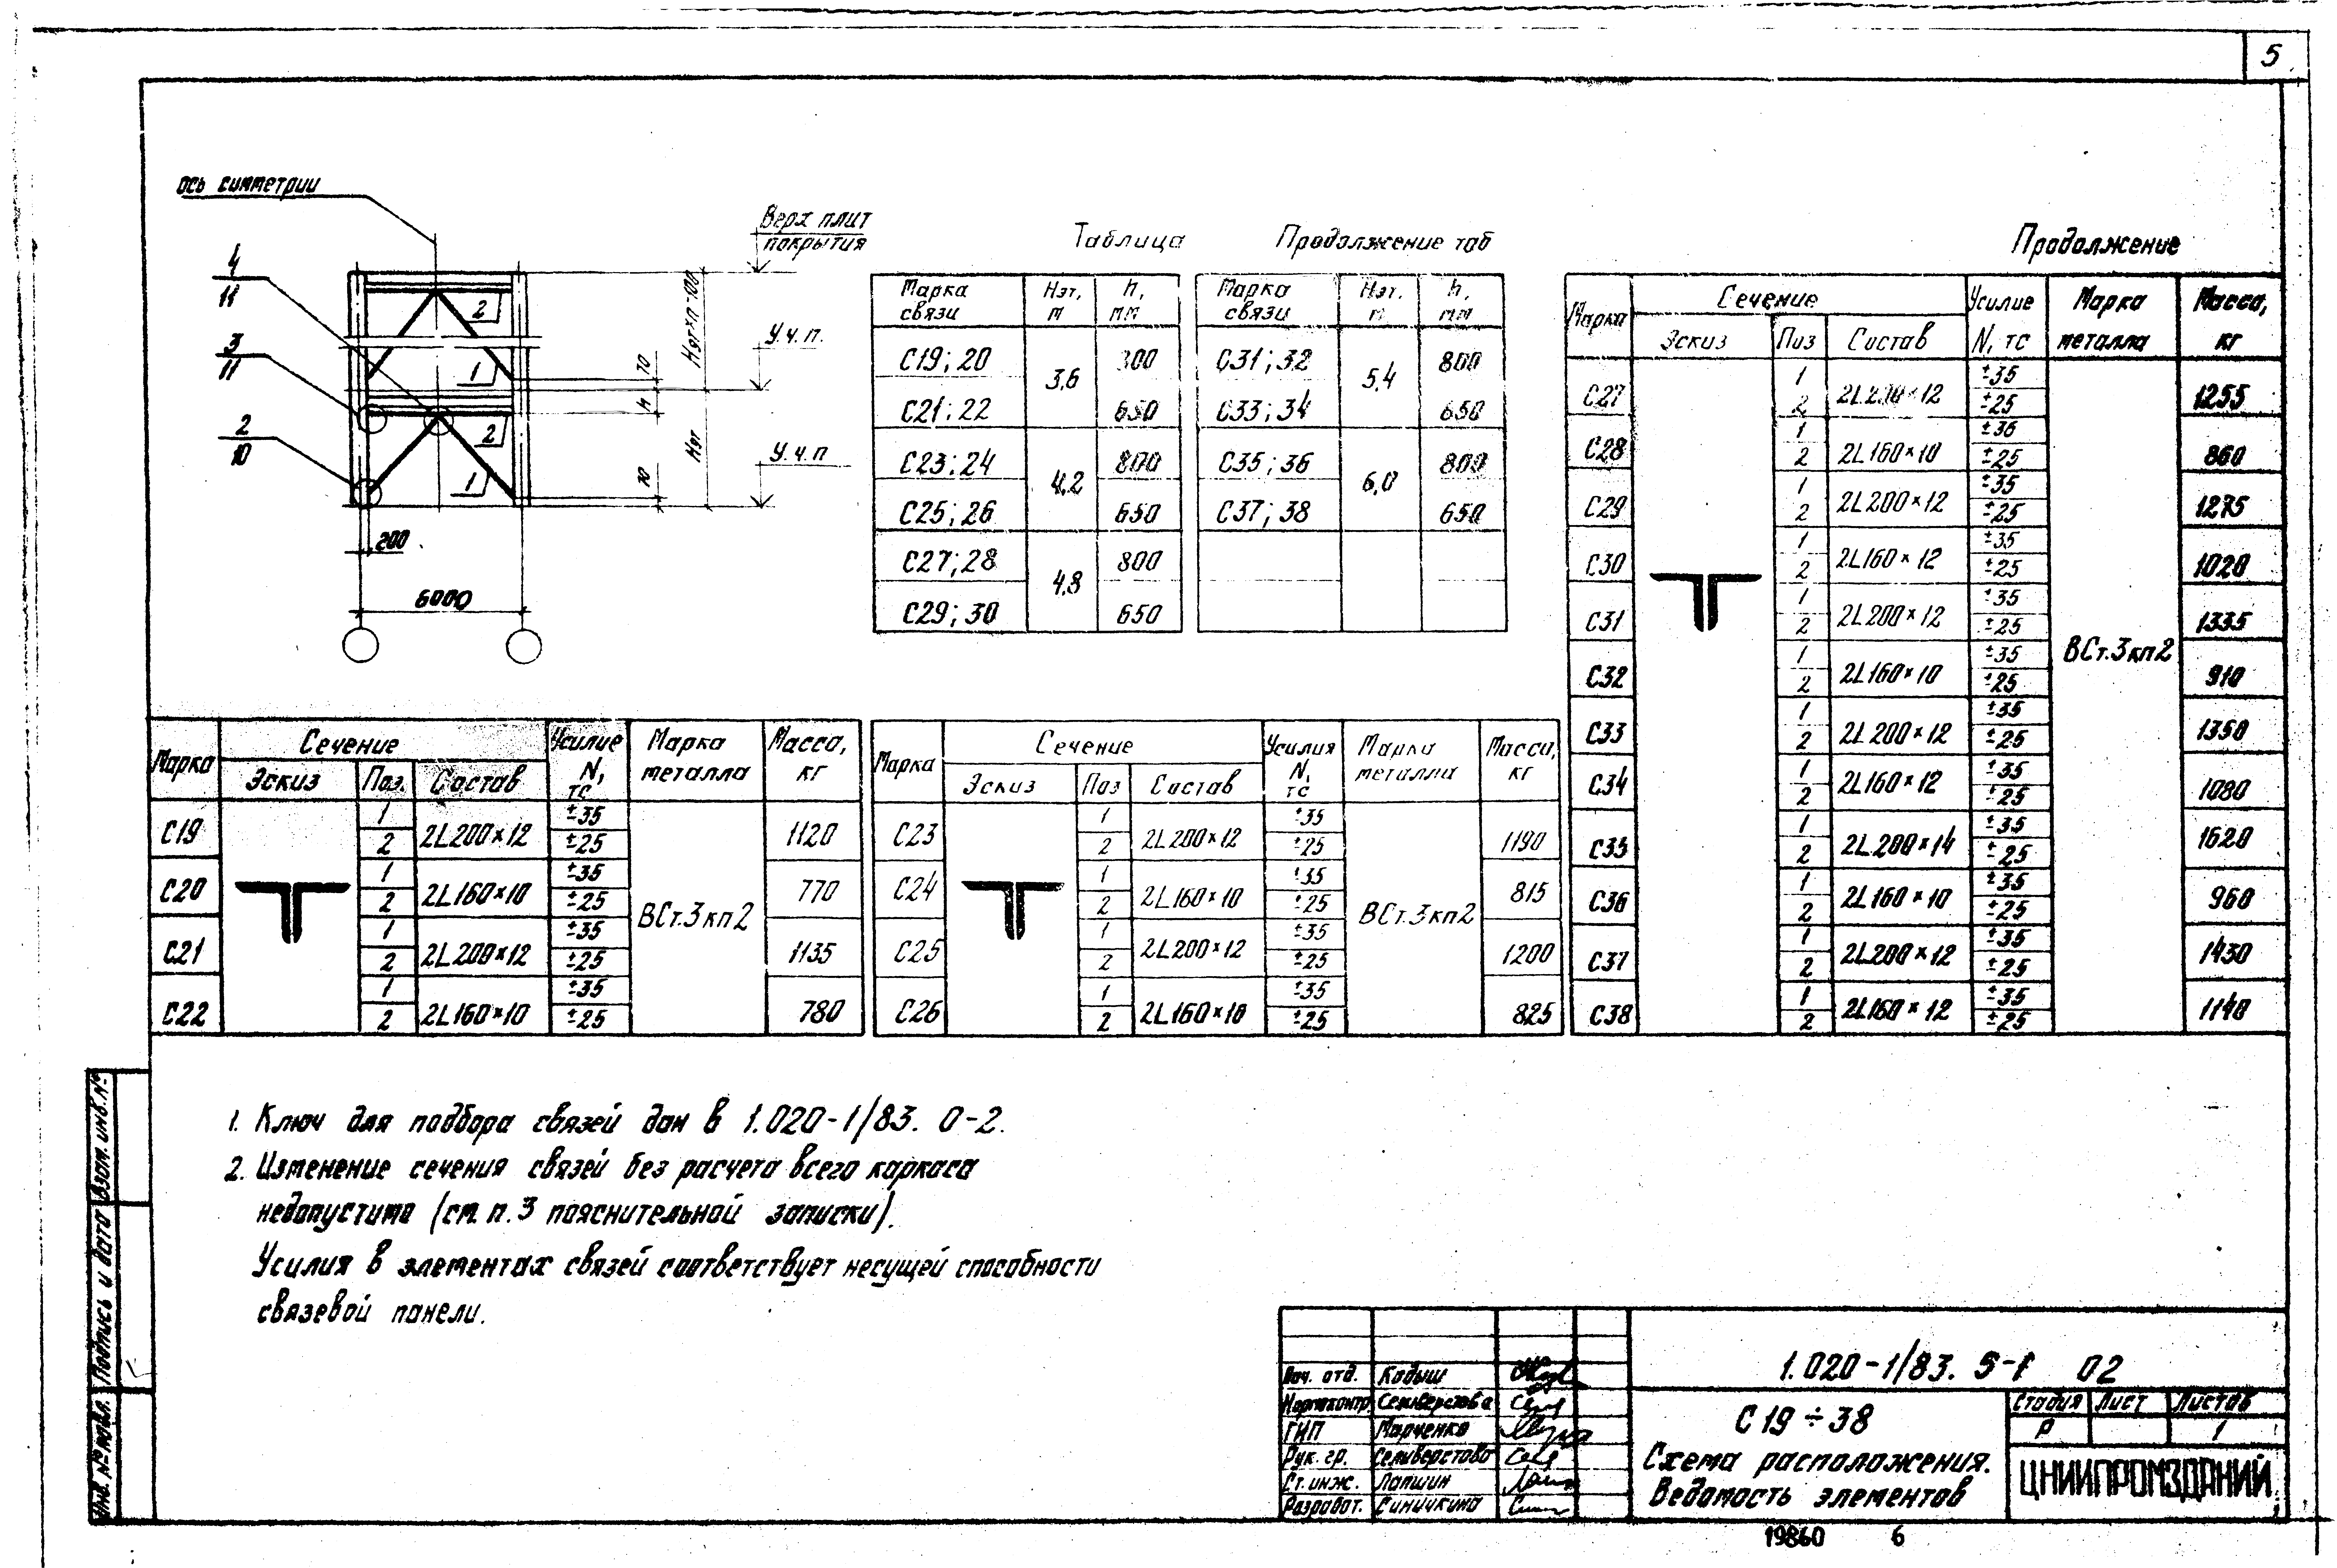 5
ось симметрии
Верх плит
покрытия
4
11
3
11
2
10
2
1
2
1
70
h
70
Нэт×n-100
Нэт
У.ч.п.
У.ч.п
200
6000
Таблица
Марка связи | Нэт, м | h, мм
С19; 20 | 3,6
С21; 22 | 650
С23; 24 | 4,2 | 800
С25; 26 | 650
С27; 28 | 4,8 | 800
С29; 30 | 650
Продолжение таб
Марка связи | Нэт, м | h, мм
С31; 32 | 5,4 | 800
С33; 34 | 650
С35; 36 | 6,0 | 800
С37; 38 | 650
Продолжение
Марка | Сечение | Усилие N, тс | Марка металла | Масса, кг
Эскиз | Поз | Состав
С27 | 1 | 2L200×12 | ±35 | 1255
2 | ±25
С28 | 1 | 2L160×10 | ±36 | 860
2 | ±25
С29 | 1 | 2L200×12 | ±35 | 1275
2 | ±25
С30 | 1 | 2L160×12 | ±35 | 1020
2 | ±25
С31 | 1 | 2L200×12 | ±35 | 1335
2 | ±25
ВСт.3кп2
С32 | 1 | 2L160×10 | ±35 | 910
2 | ±25
С33 | 1 | 2L200×12 | ±35 | 1350
2 | ±25
С34 | 1 | 2L160×12 | ±35 | 1080
2 | ±25
С35 | 1 | 2L200×14 | ±35 | 1620
2 | ±25
С36 | 1 | 2L160×10 | ±35 | 960
2 | ±25
С37 | 1 | 2L200×12 | ±35 | 1430
2 | ±25
С38 | 1 | 2L160×12 | ±35 | 1140
2 | ±25
Марка | Сечение | Усилие N, тс | Марка металла | Масса, кг
Эскиз | Поз. | Состав
С19 | 1 | 2L200×12 | ±35 | 1120
2 | ±25
С20 | 1 | 2L160×10 | ±35 | 770
2 | ±25
ВСт.3кп2
С21 | 1 | 2L200×12 | ±35 | 1135
2 | ±25
С22 | 1 | 2L160×10 | ±35 | 780
2 | ±25
Марка | Сечение | Усилия N, тс | Марка металла | Масса, кг
Эскиз | Поз | Состав
С23 | 1 | 2L200×12 | ±35 | 1190
2 | ±25
С24 | 1 | 2L160×10 | ±35 | 815
2 | ±25
ВСт.3кп2
С25 | 1 | 2L200×12 | ±35 | 1200
2 | ±25
С26 | 1 | 2L160×10 | ±35 | 825
2 | ±25
1. Ключ для подбора связей дан в 1.020-1/83. 0-2.
2. Изменение сечения связей без расчета всего каркаса
недопустимо (см. п. 3 пояснительной записки).
Усилия в элементах связей соответствует несущей способности
связевой панели.
Взам. инв. №
Подпись и дата
Инв. № подл.
Нач. отд. Кодыш
Нормоконтр. Селиверстова
ГИП Марченко
Рук. гр. Селиверстова
Ст. инж. Лапшин
Разработ. Синичкина
1.020-1/83. 5-1 02
С 19 ÷ 38
Схема расположения.
Ведомость элементов
Стадия | Лист | Листов
Р | 1
ЦНИИПРОМЗДАНИЙ
19860 6